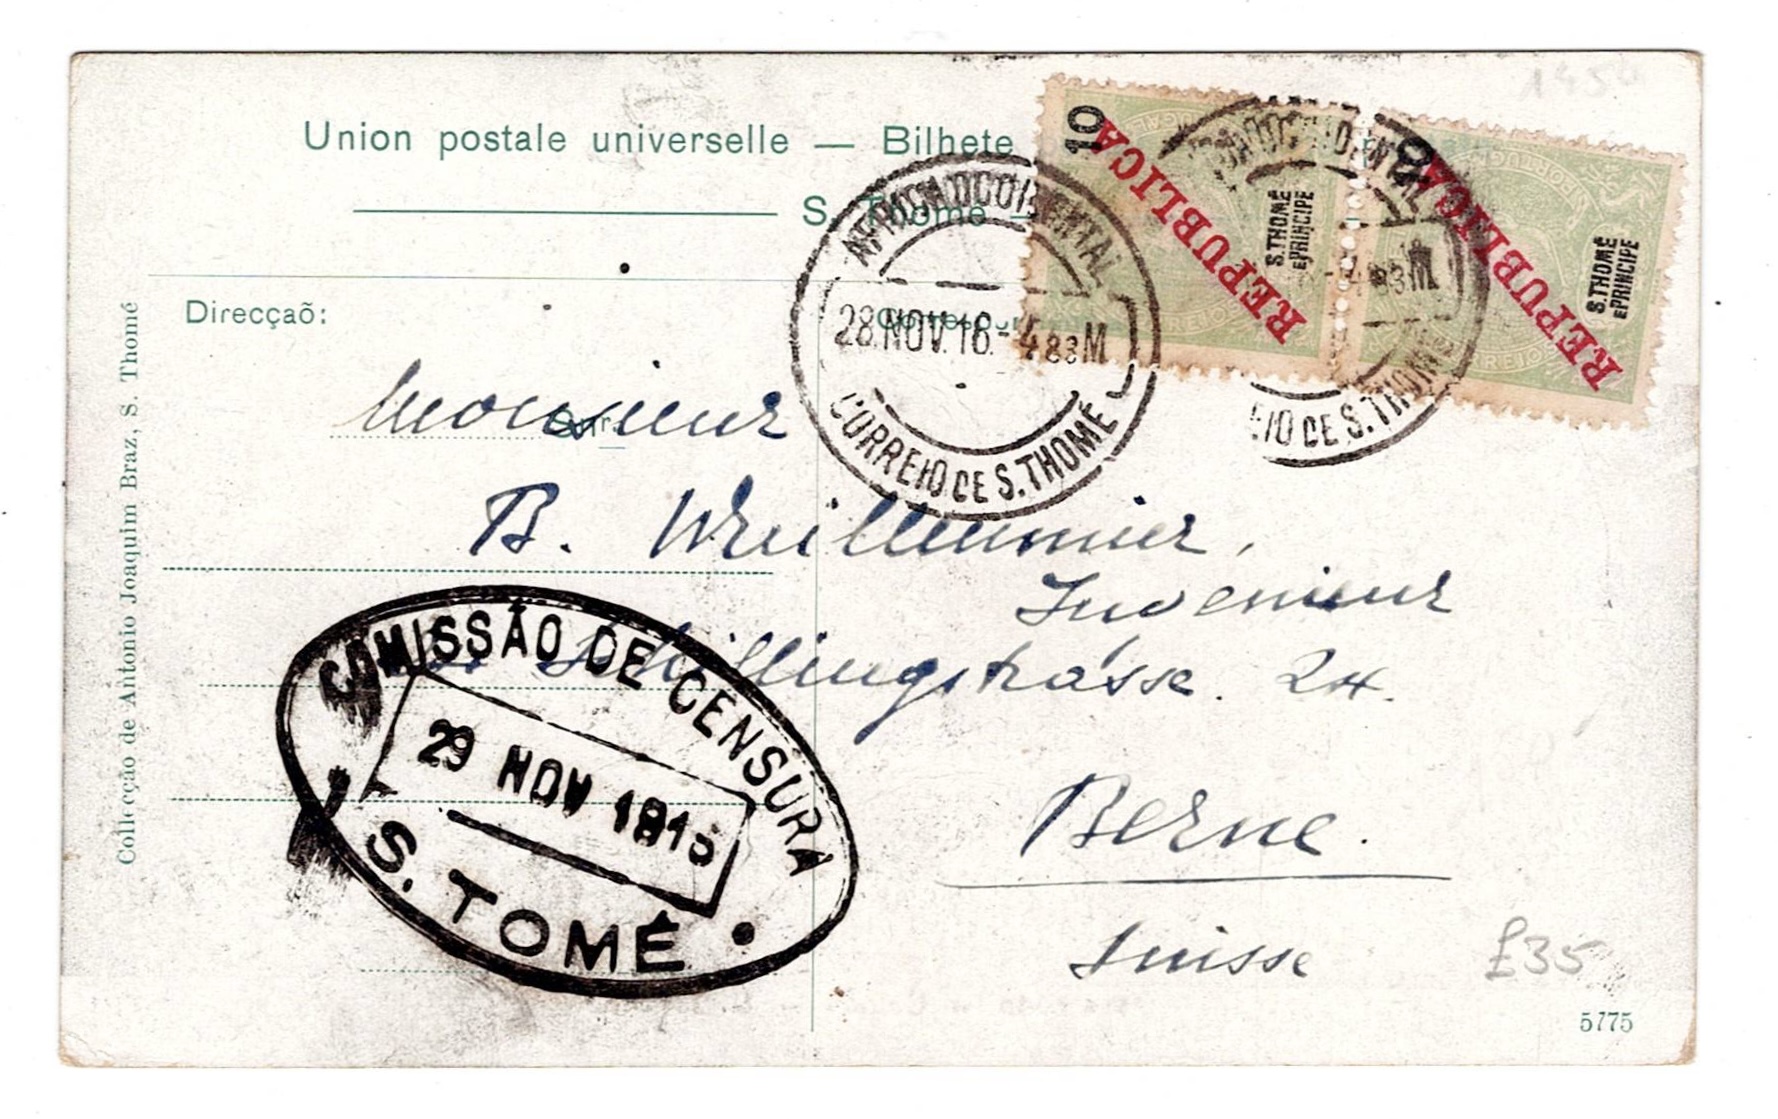 Union postale universelle — Bilhete
S. Thomé
1454
10
REPUBLICA
S. THOMÉ
E PRINCIPE
10
REPUBLICA
S. THOMÉ
E PRINCIPE
CORREIO
AFRICA OCCIDENTAL
28.NOV.16.-4 83M
CORREIO DE S. THOMÉ
83M
EIO DE S. THOMÉ
Direcçaõ:
Monsieur
B. Wuilleumier,
Ingenieur
Schillingstrasse. 24.
Berne.
Suisse
COMISSÃO DE CENSURA
29 NOV 1916
S. TOMÉ
£35
5775
Collecção de Antonio Joaquim Braz, S. Thomé